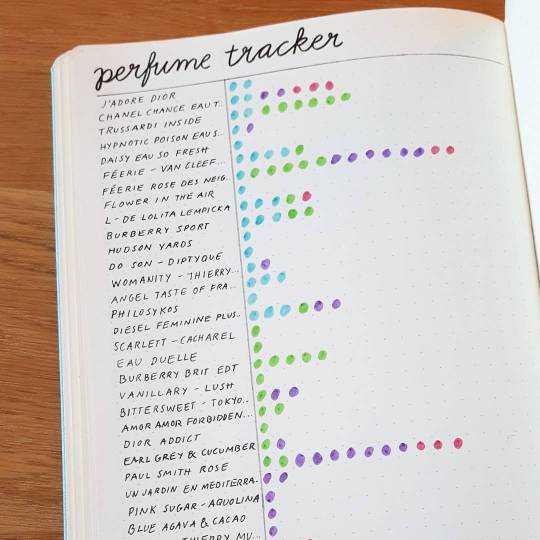 perfume tracker
J'ADORE DIOR
CHANEL CHANCE EAU T...
TRUSSARDI INSIDE
HYPNOTIC POISON EAU S...
DAISY EAU SO FRESH
FÉERIE - VAN CLEEF...
FÉERIE ROSE DES NEIG...
FLOWER IN THE AIR
L - DE LOLITA LEMPICKA
BURBERRY SPORT
HUDSON YARDS
DO SON - DIPTYQUE
WOMANITY - THIERRY...
ANGEL TASTE OF FRA...
PHILOSYKOS
DIESEL FEMININE PLUS..
SCARLETT - CACHAREL
EAU DUELLE
BURBERRY BRIT EDT
VANILLARY - LUSH
BITTERSWEET - TOKYO..
AMOR AMOR FORBIDDEN...
DIOR ADDICT
EARL GREY & CUCUMBER
PAUL SMITH ROSE
UN JARDIN EN MEDITERRA..
PINK SUGAR - AQUOLINA
BLUE AGAVA & CACAO
THIERRY MU...